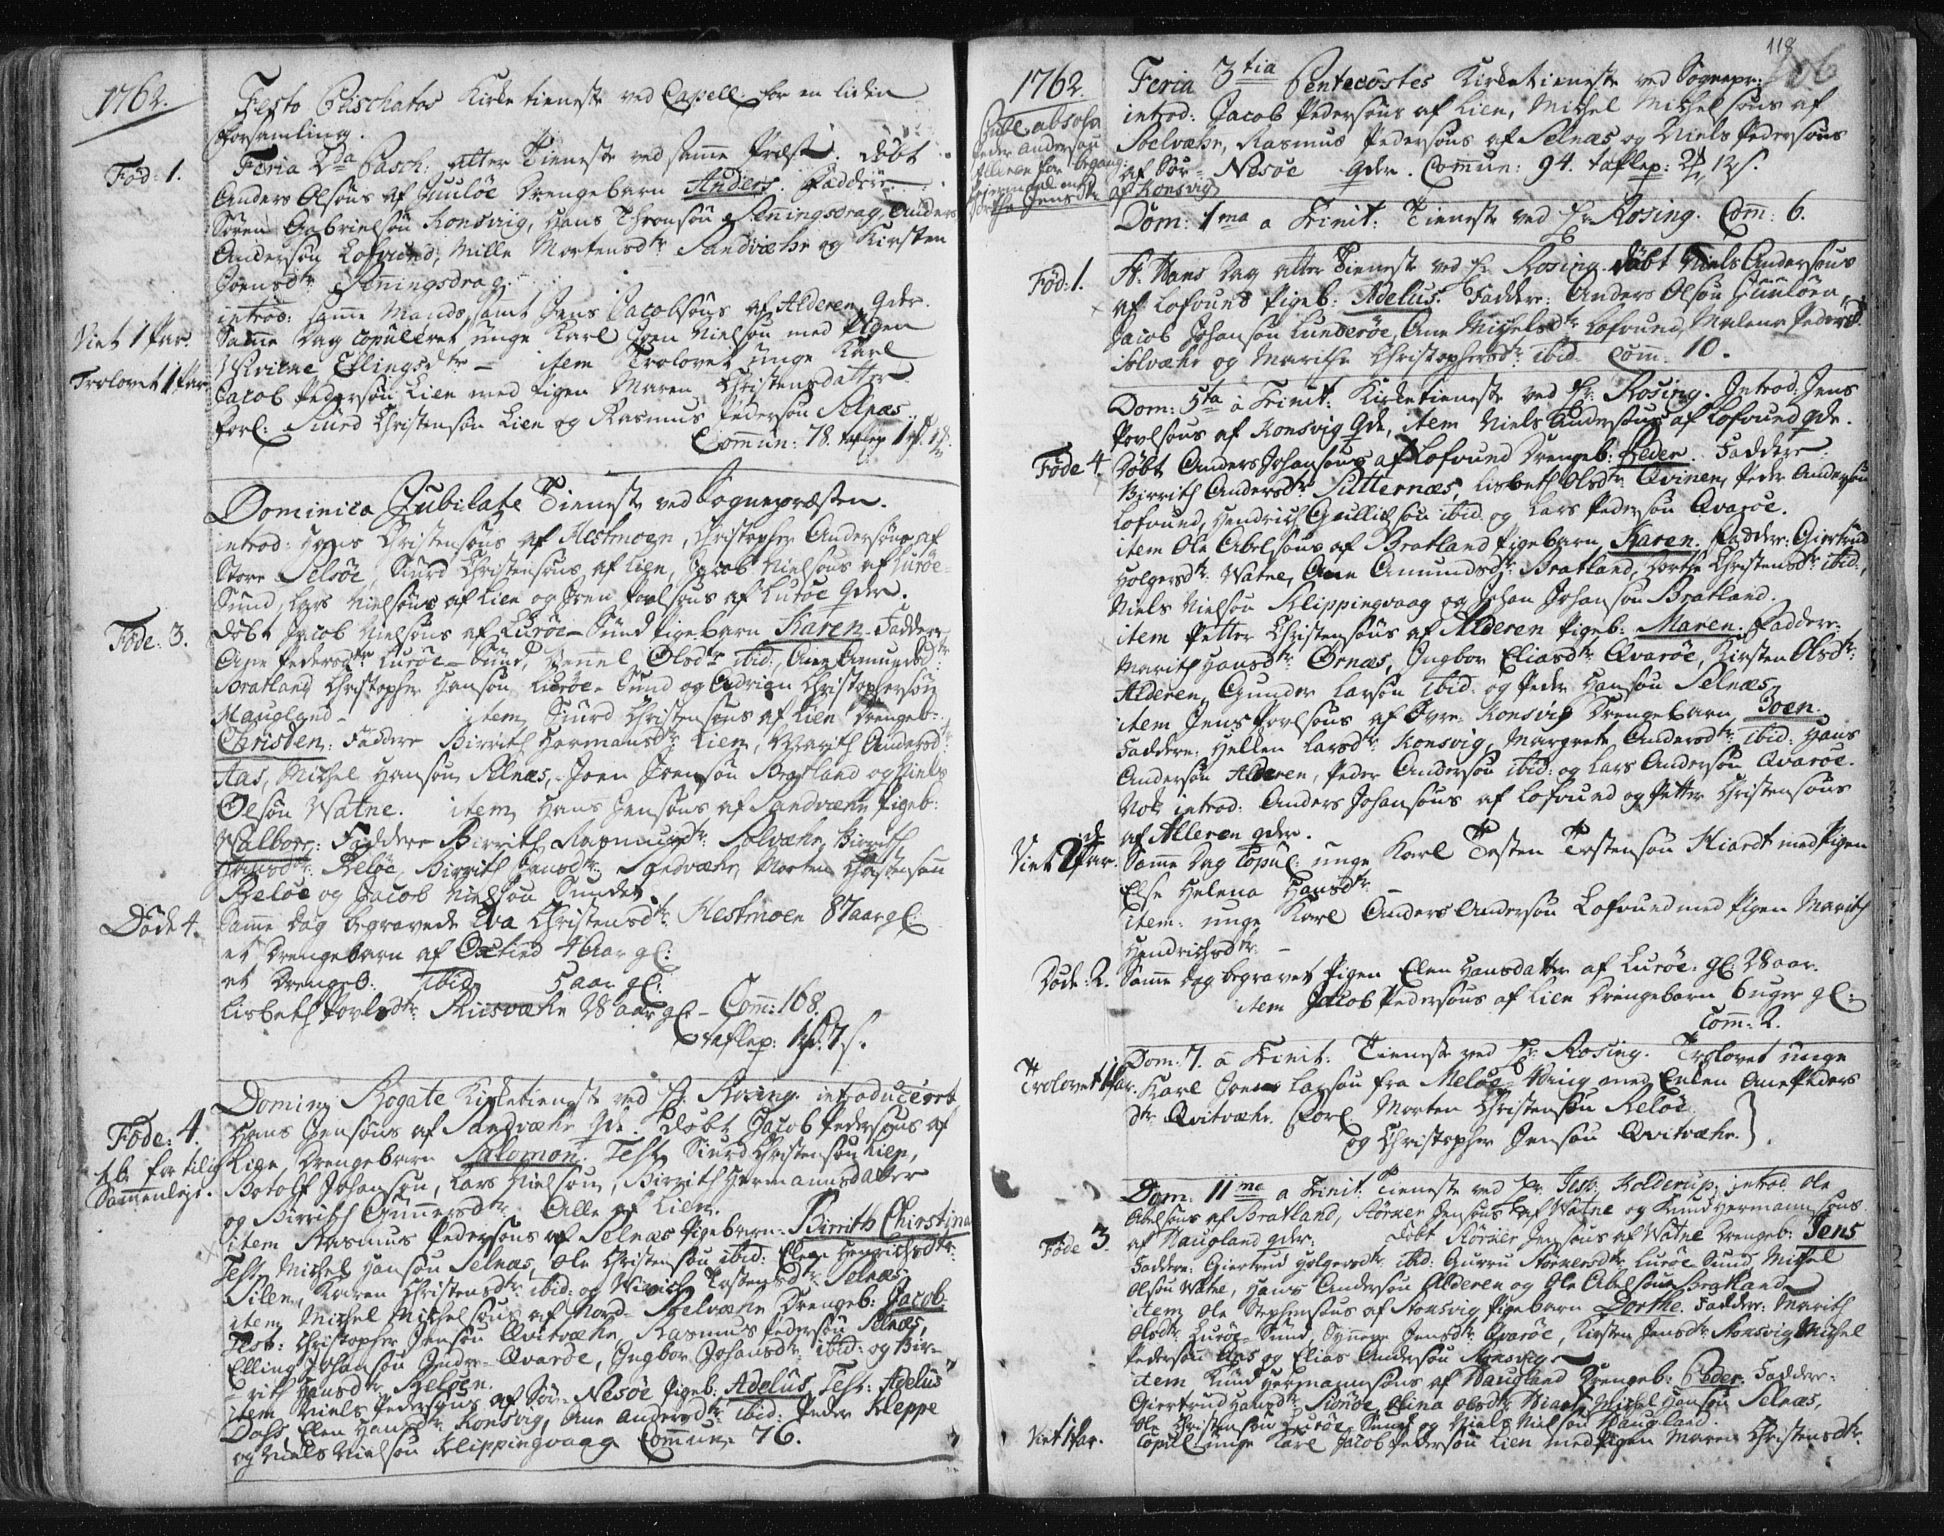 1762.
Festo Paschatos Kirketieneste ved Capell. for en liden
forsamling.
Fød: 1.
Feria 2da Pasch: atter Tieneste ved samme Præst. døbt
Anders Olsøns af Juuløe Drengebarn Anders. Fadder
Søren Gabrielsøn Konsvig, Hans Thronsøn Peningsdrag, Anders
Andersøn Lofuund, Mille Mortensdtr Sandvæhr og Kirsten
Joensdtr Peningsdrag.
introd: samme Mands, samt Jens Jacobsøns af Alderen qder.
Viet 1 Par.
Samme Dag copuleret unge Karl Joen Nielsøn med Pigen
Ellingsdtr - item Trolovet unge Karl
Trolovet 1 Par
Jacob Pedersøn Lien med Pigen Maren Christensdatter.
forl: Siurd Christensøn Lien og Rasmus Pedersøn Selnæs.
Commun: 78.
Dominica Jubilate Tieneste ved Sognepræsten.
introd: Hans Christensøns af Hestmoen, Christopher Andersøns af
Store Selsøe, Siurd Christensøns af Lien, Jacob Nielsøns af Lurøe-
Sund, Lars Nielsøns af Lien og Joen Povlsøns af Lurøe qder.
Føde: 3.
døbt Jacob Nielsøns af Lurøe-Sund Pigebarn Karen. Faddere
Ane Pedersdtr Lurøe-Sund, Olsdtr ibid:, Ane Amundsdtr
Bratland Christopher Hansøn Lurøe-Sund og Adrian Christophersøn
Maugland - item Siurd Christensøns af Lien Drengeb:
Christen: Faddere Birrith Hermansdtr Lien, Marith Andersdtr
Aas, Michel Hansøn Selnæs, Joen Joensøn Bratland og Niels
Olsøn Watne. item Hans Jensøns af Sandvæhr Pigeb:
Walbor: Faddere Birrith Rasmusdtr Solvæhr, Birrith
Hansdtr Reløe, Birrith Hansdtr Sandvæhr, Morten Christensøn
Reløe og Jacob Nielsøn Sundet.
Døde 4.
Samme Dag begravede Eva Christensdtr Hestmoen 87 aar gl.
et Drengebarn af Oxtind 4 Aar gl:
et Drengeb: ibid: 5 aar gl:
Lisbeth Povlsdtr Riisvæhr 28 aar gl - Com: 168.
Taflep: 1 7 s.
Domin: Rogate Kirketieneste ved Hr Rosing. introduceert
Føde: 4.
Hans Jensøns af Sandvæhr qde. Døbt Jacob Pedersøns af
Lien, Drengebarn Salomon. Test. Siurd Christensøn Lien,
for tilig
Sammenleje.
Botolf Johansøn, Lars Nielsøn, Birrith Hermannsdatter
og Birrith Gunnersdtr Alle af Lien.
item Rasmus Pedersøns af Selnæs Pigebarn: Birrith Chirstina
Test. Michel Hansøn Selnæs, Ole Christensøn ibid: Elen Henrichsdtr
Silen, Karen Christensdtr ibid: og Wivich Tostensdtr Selnæs
item Michel Michelsøns af Nord-Soelvæhr Drengeb: Jacob.
Test: Christopher Jensøn Qvitvæhr, Rasmus Pedersøn Selnæs,
Elling Johansøn Indre-Qvarøe, Ingbor Johansdtr ibid: og Bir-
rith Hansdtr Reløen.
item Niels Pedersøns af Sør-Nesøe Pigeb: Adelus Test: Adelus
Dass Elen Hansdtr Konsvig, Ane Andersdtr ibid: Peder Kleppe
og Niels Nielsøn Klippingvaag Commun: 76.
118
106
1762.
Feria 3tia Pentecostes Kirketieneste ved Sognepr:
introd: Jacob Pedersøns af Lien, Michel Michelsøns af
Soelvæhr, Rasmus Pedersøns af Selnæs og Niels Pedersøns
af Sør-Nesøe qder. Commun: 94. taflep:
absolv
Peder Andersøn
Alleren for begang:
med
Dorthe Jensdtr
af Konsvig
Dom: 1ma a Trinit: Tieneste ved Hr Rosing. Com: 6.
Fød: 1.
St. Hans Dag atter Tieneste ved Hr Rosing. døbt Niels Andersøns
af Lofuund Pigeb: Adelus. Faddere: Anders Olsøn Juuløen
Jacob Johansøn Lunderøe, Ane Michelsdtr Lofuund, Malena Pedersdtr
Solvæhr og Marithe Christophersdtr ibid. Com: 10.
Dom: 5ta a Trinit: Kirketieneste ved Hr Rosing. Introd. Jens
Povlsøns af Konsvig qde, item Niels Andersøns af Lofuund qde.
Føde 4.
Døbt Anders Johansøns af Lofuund Drengeb: Peder. Faddere:
Birrith Andersdtr Sutternæs, Lisbeth Olsdtr Qvinen, Peder Andersøn
Lofuund, Hendrich Gullichsøn ibid. og Lars Pedersøn Qvarøe.
item Ole Abelsøns af Bratland Pigebarn Karen. Faddere: Giertrud
Holgersdtr Watne, Ane Amundsdtr Bratland, Dorthe Christensdtr ibid:,
Niels Nielsøn Klippingvaag og Johan Johansøn Bratland.
item Petter Christensøns af Alderen Pigeb: Maren. Faddere:
Marith Hansdtr Ørnæs, Ingbor Eliasdtr Qvarøe, Kirsten Olsdtr
Alderen, Gunder Larsøn ibid. og Peder Hansøn Selnæs.
item Jens Povlsøns af Øvre-Konsvig Drengebarn Joen.
Faddere: Hellen Larsdtr Konsvig, Margrete Andersdtr ibid: Hans
Andersøn Alderen, Peder Andersøn ibid: og Lars Andersøn Qvarøe.
Nok introd: Anders Johansøns af Lofuund og Petter Christensøns
af Alleren qder.
Viet 2 Par.
Samme Dag Copul: unge Karl Tosten Tostensøn Hiardt med Pigen
Else Helena Hansdtr -
item: unge Karl Anders Andersøn Lofuund med Pigen Marith
Hendrichsdtr -
Døde: 2.
Samme Dag begravet Pigen Elen Hansdatter af Lurøe: gl: 28 aar.
item Jacob Pedersøns af Lien Drengebarn 6 uger gl:
Com: 2.
Trolovet 1 Par.
Dom: 7. a Trinit: Tieneste ved Hr Rosing. Trolovet unge
Karl Joen Larsøn fra Meløe-Wæg med Enken Ane Peders
dtr Qvitvæhr. Forl Morten Christensøn Reløe
og Christopher Jensøn Qvitvæhr.
Dom: 11ma a Trinit. Tieneste ved Hr Jesp. Holderup. introd Ole
Abelsøns af Bratland, Størker Jensøns af Watne og Knud Hermannsøns
Føde 3.
af Haugland qder. Døbt Størker Jensøns af Watne Drengeb: Jens
Faddere: Giertrud Holgersdtr ibid: Gurru Størkersdtr Lurøe Sund, Michel
Olsøn Watne, Hans Andersøn Alderen og Ole Abelsøn Bratland
item Ole Stephensøns af Stonsvig Pigebarn Dorthe. Faddere: Marith
Olsdtr Lurøe-Sund, Synneve Jensdtr Qvarøe, Kirsten Jensdtr Stonsvig, Michel
Pedersøn Aas og Elias Andersøn Konsvig.
item Knud Hermannsøns af Haugland Drengeb: Peder. Faddere:
Giertrud Hansdtr Olsdtr Michel Hansøn Selnæs,
Ole Christensøn Lurøe-Sund og Niels Nielsøn Haugland.
Viet 1 Par.
Copul: unge Karl Jacob Pedersøn Lien med Pigen Maren Christensdtr.